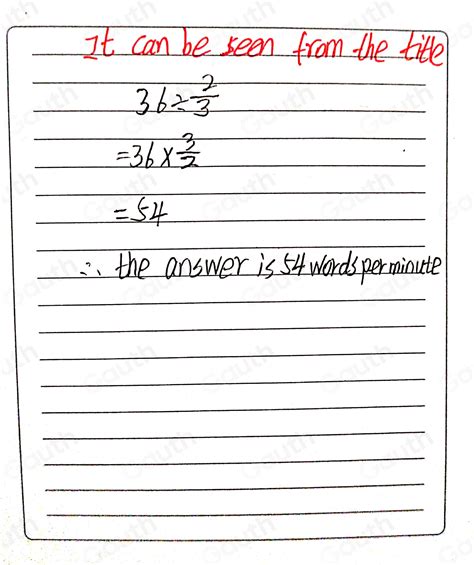 It can be seen from the title
36÷2/3
=36×3/2
=54
∴ the answer is 54 words per minute